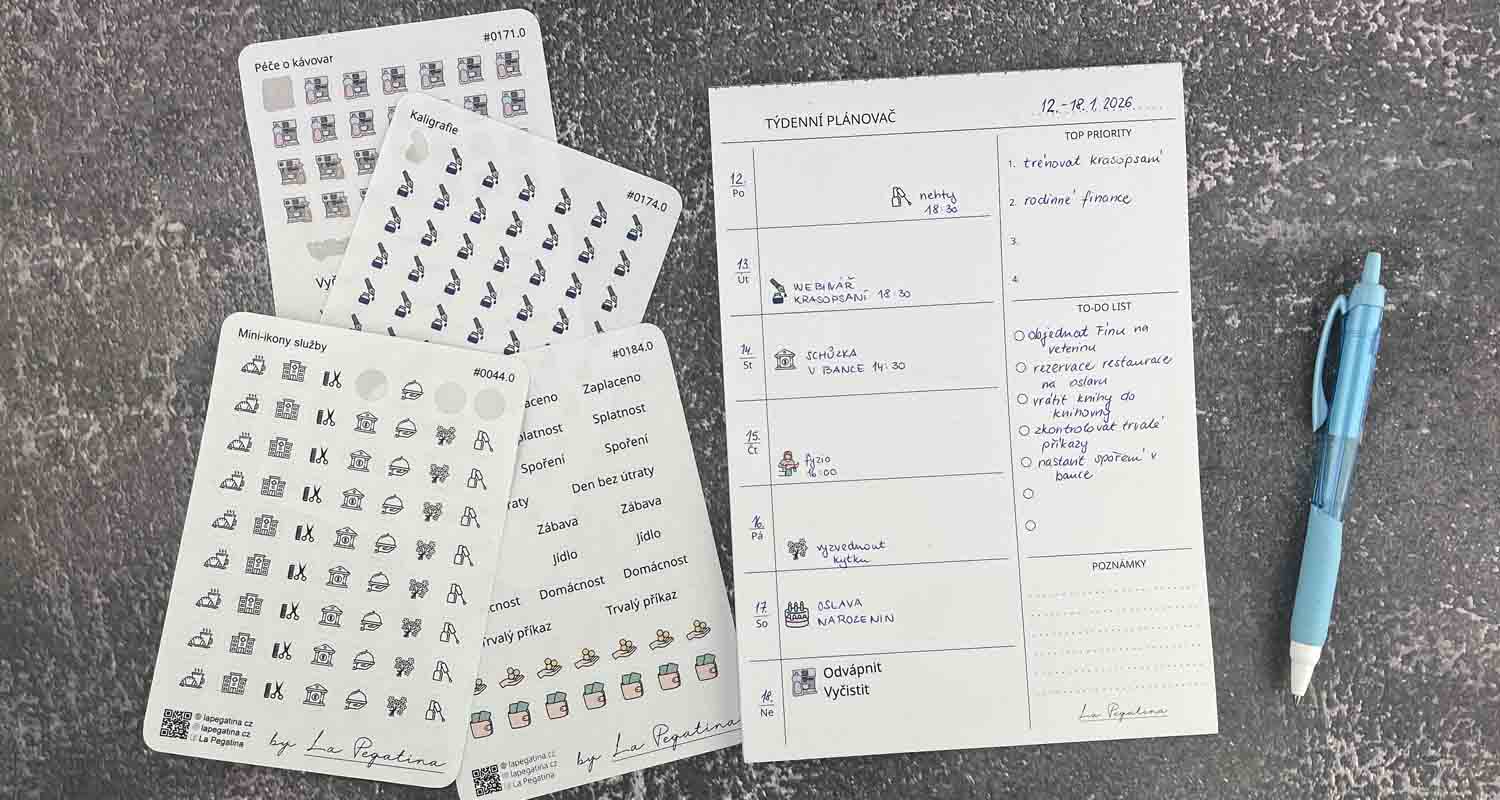 Péče o kávovar
#0171.0
Kaligrafie
#0174.0
Mini-ikony služby
#0044.0
@ lapegatina.cz
lapegatina.cz
La Pegatina
by La Pegatina
#0184.0
Zaplaceno
Splatnost
Spoření
Spoření
Den bez útraty
Zábava
Zábava
Jídlo
Jídlo
Domácnost
Domácnost
Trvalý příkaz
Trvalý příkaz
lapegatina.cz
lapegatina.cz
La Pegatina
by La Pegatina
TÝDENNÍ PLÁNOVAČ
12.-18.1.2026
12.
Po
nehty
18:30
13.
Út
WEBINÁŘ
KRASOPSANÍ 18:30
14.
St
SCHŮZKA
V BANCE 14:30
15.
Čt
fyzio
16:00
16.
Pá
vyzvednout
kytku
17.
So
OSLAVA
NAROZENIN
18.
Ne
Odvápnit
Vyčistit
TOP PRIORITY
1. trénovat krasopsaní
2. rodinné finance
3.
4.
TO-DO LIST
objednat Finu na
veterinu
rezervace restaurace
na oslavu
vrátit knihy do
knihovny
zkontrolovat trvalé
příkazy
nastavit spoření v
bance
POZNÁMKY
La Pegatina